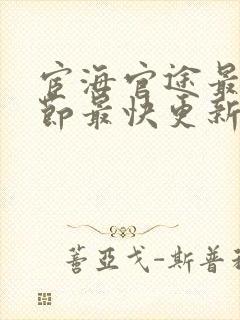 宦海官途最
节最快更新
蓍亚戈-斯普利